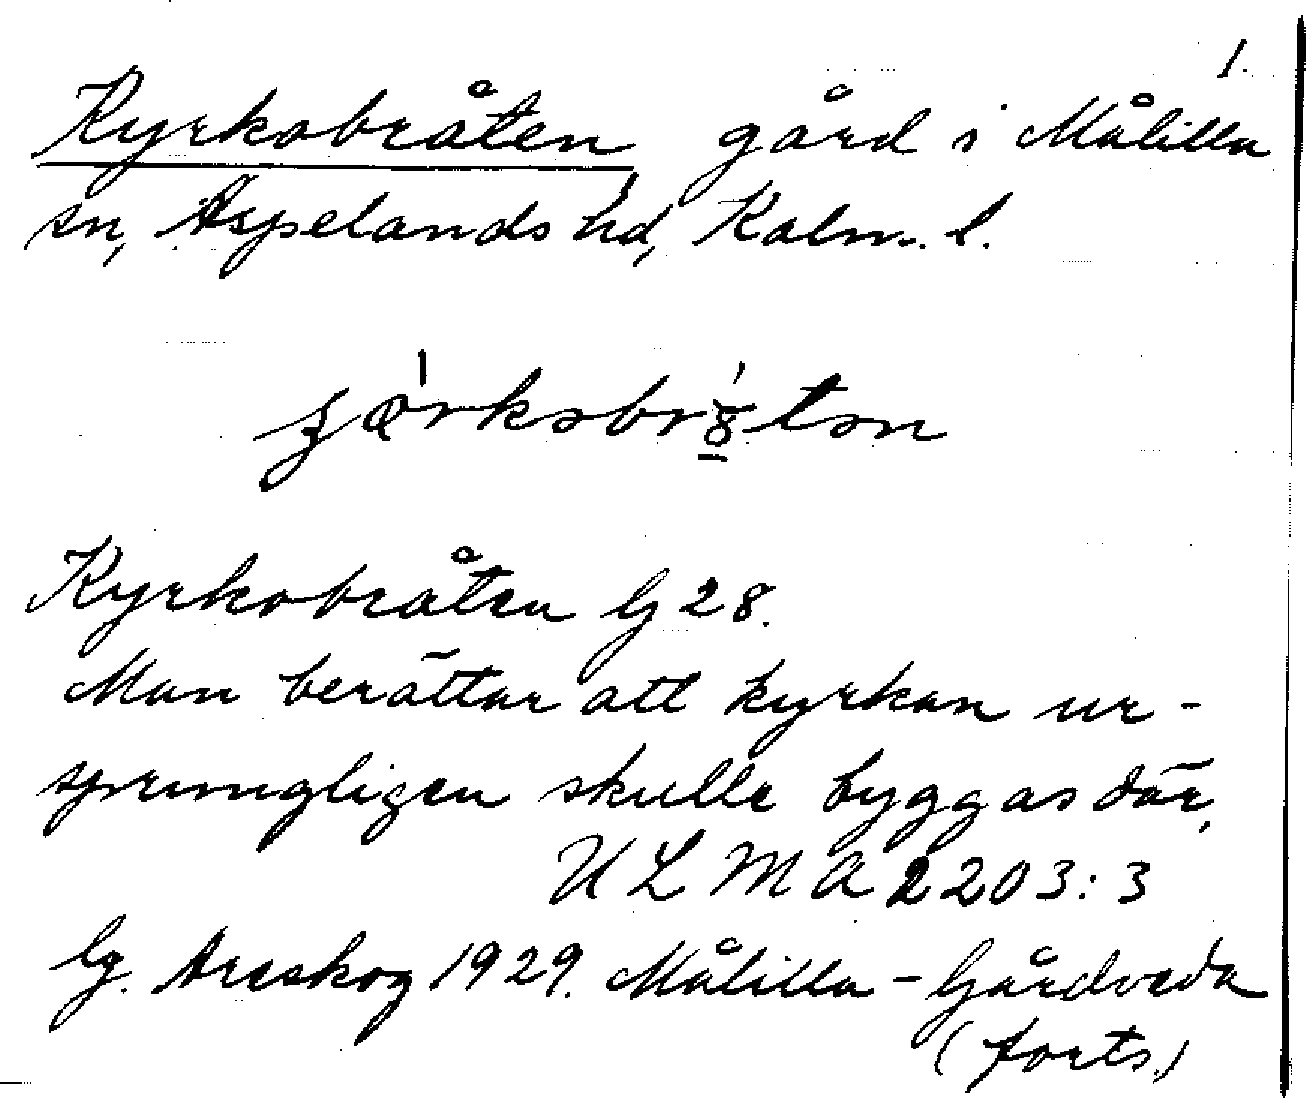 1.
Kyrkobråten, gård i Målilla
sn, Aspelands hd, Kalm. l.
Kyrkobråten G 28.
Man berättar att kyrkan ur-
sprungligen skulle byggas där,
ULMA 2203:3
G. Areskog 1929. Målilla - Gårdveda
(forts.)